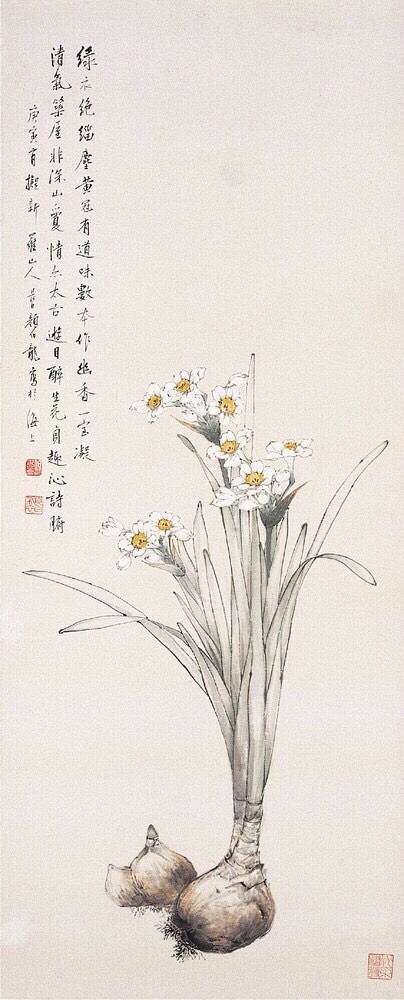 綠衣絕緇塵黃冠有道味數本作幽香一室凝
清氣築屋非深山夐情亦太古遊目醉生花自趣沁詩脾
庚寅夏擬新羅山人 顏伯龍寫於海上